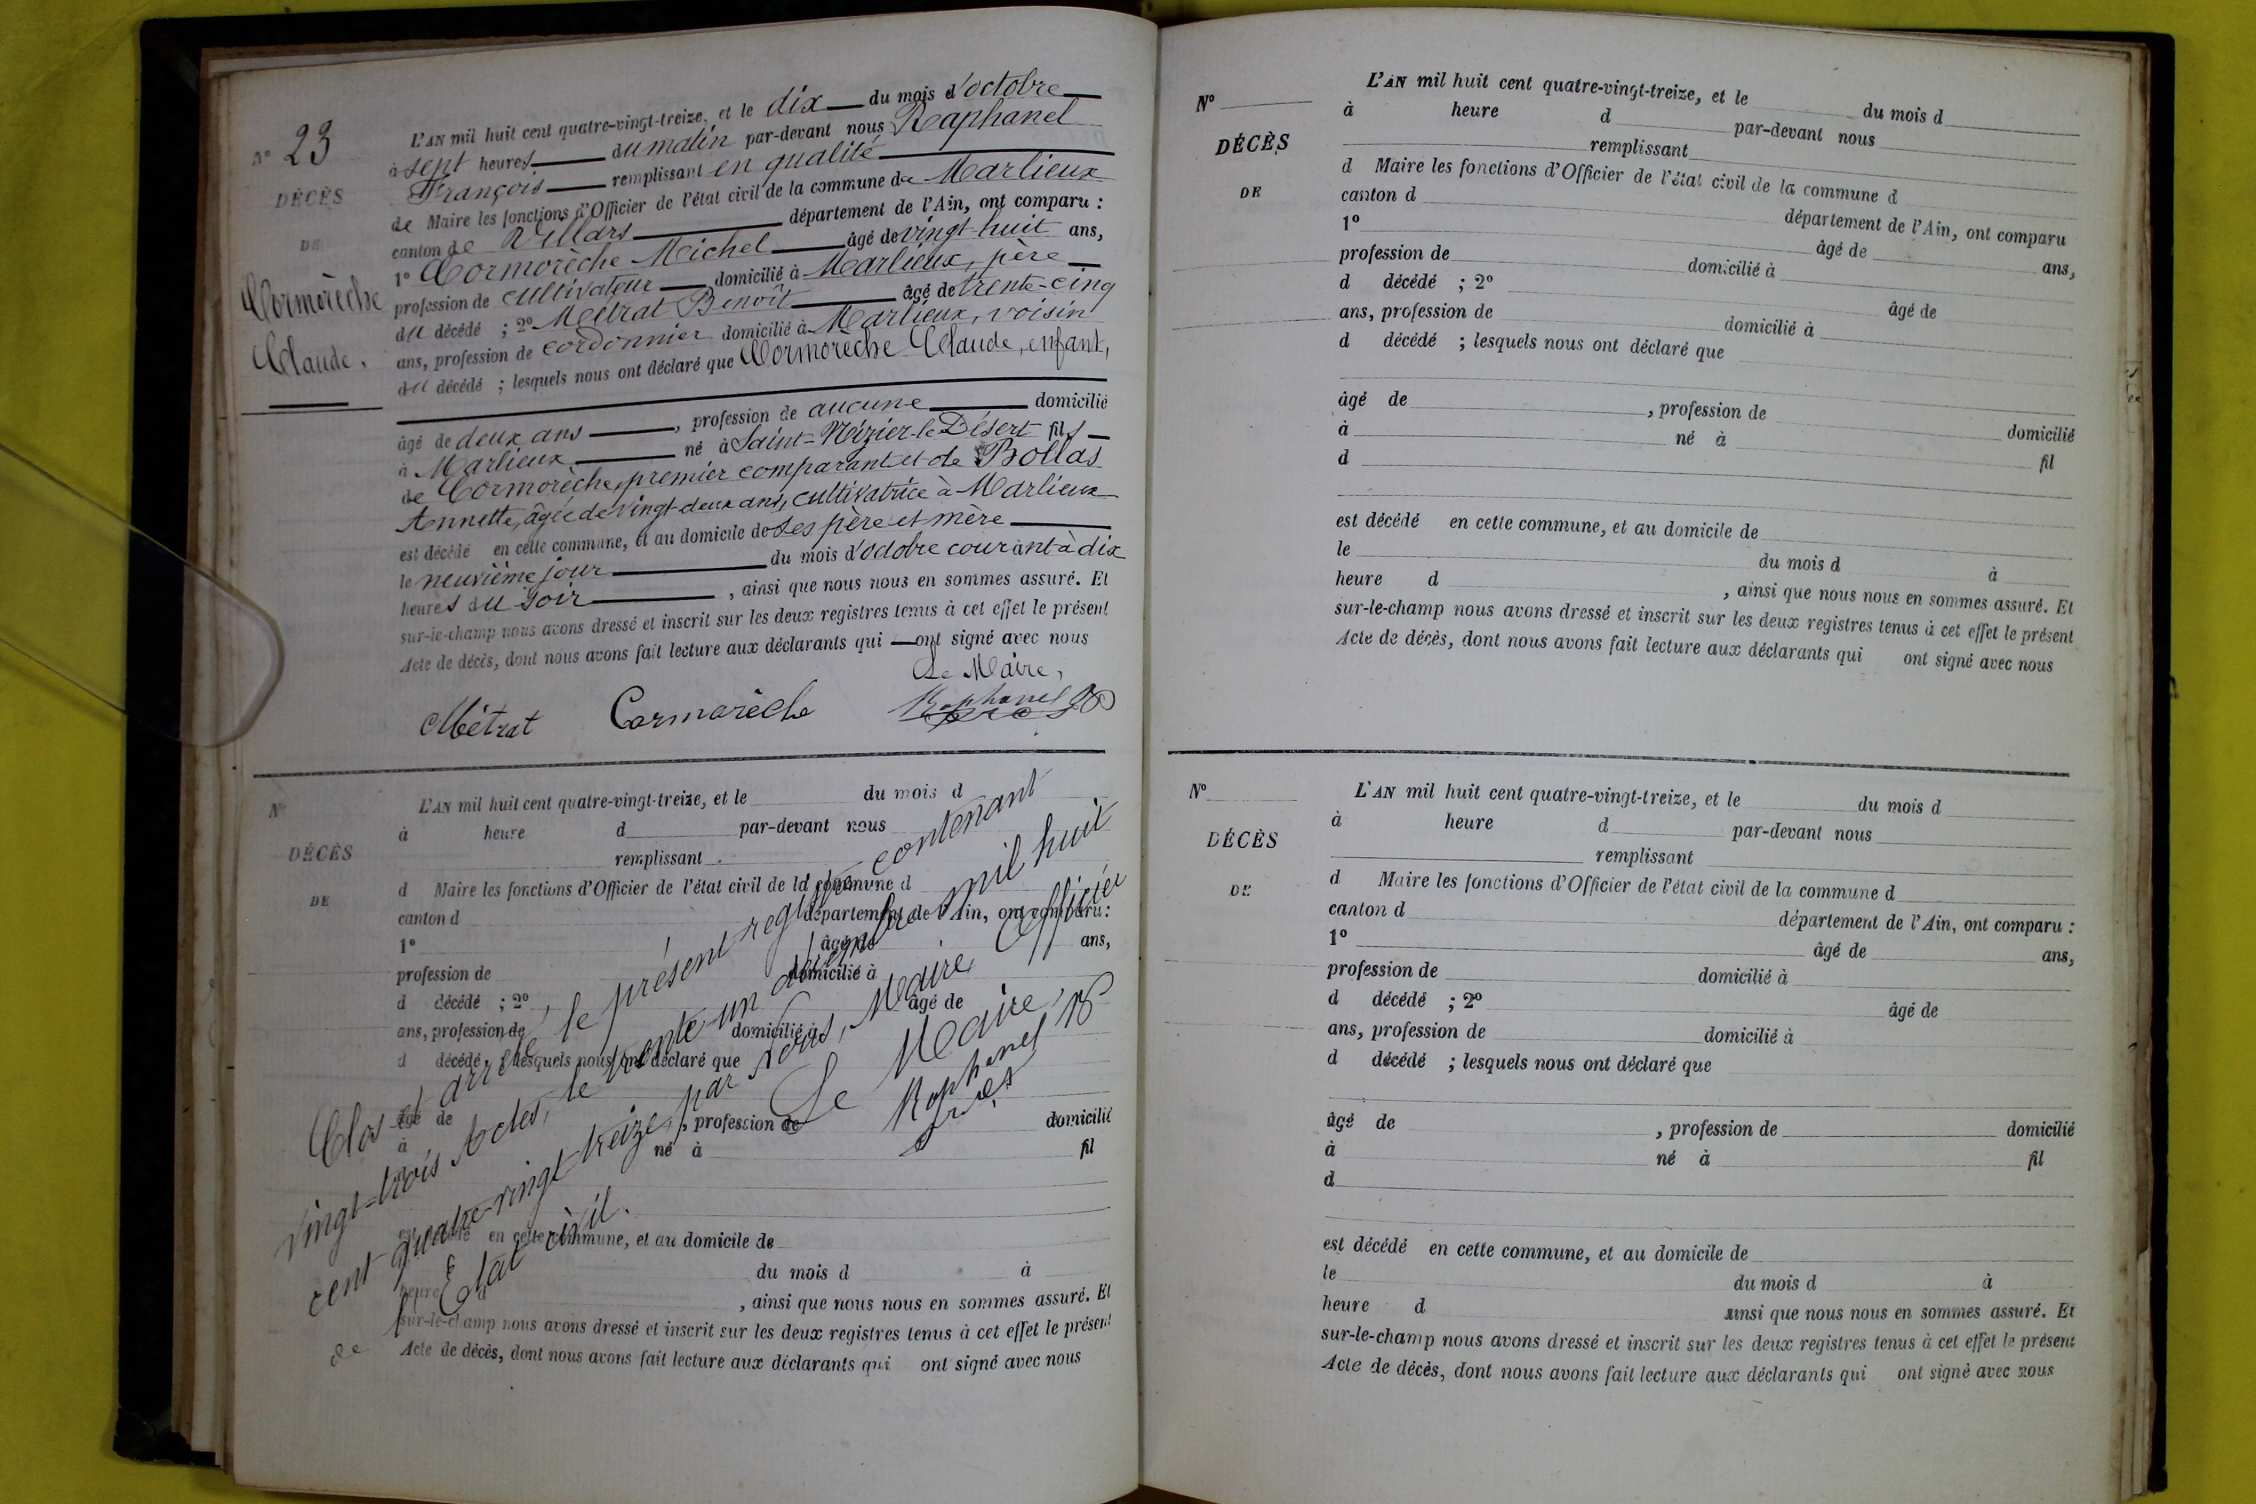 N° 23
DÉCÈS
DE
Cormorèche
Claude.
L'AN mil huit cent quatre-vingt-treize, et le dix du mois d'octobre
à sept heures du matin par-devant nous Raphanel
François remplissant en qualité
de Maire les fonctions d'Officier de l'état civil de la commune de Marlieux
canton de Villars département de l'Ain, ont comparu :
1° Cormorèche Michel âgé de vingt-huit ans,
profession de cultivateur domicilié à Marlieux, père
du décédé ; 2° Métrat Benoît âgé de trente-cinq
ans, profession de cordonnier domicilié à Marlieux, voisin
du décédé ; lesquels nous ont déclaré que Cormorèche Claude, enfant,
âgé de deux ans , profession de aucune domicilié
à Marlieux né à Saint-Nizier-le-Désert fils
de Cormorèche, premier comparant et de Bollas
Annette, âgée de vingt-deux ans, cultivatrice à Marlieux
est décédé en cette commune, et au domicile de ses père et mère
le neuvième jour du mois d'octobre courant à dix
heures du soir , ainsi que nous nous en sommes assuré. Et
sur-le-champ nous avons dressé et inscrit sur les deux registres tenus à cet effet le présent
Acte de décès, dont nous avons fait lecture aux déclarants qui ont signé avec nous
Le Maire,
Métrat Cormorèche Raphanel
N°
DÉCÈS
DE
L'AN mil huit cent quatre-vingt-treize, et le du mois d
à heure d par-devant nous
remplissant
d Maire les fonctions d'Officier de l'état civil de la commune d
canton d département de l'Ain, ont comparu :
1° âgé de ans,
profession de domicilié à
d décédé ; 2° âgé de
ans, profession de domicilié à
d décédé ; lesquels nous ont déclaré que
âgé de , profession de domicilié
à né à fil
est décédé en cette commune, et au domicile de
le du mois d à
heure d , ainsi que nous nous en sommes assuré. Et
sur-le-champ nous avons dressé et inscrit sur les deux registres tenus à cet effet le présent
Acte de décès, dont nous avons fait lecture aux déclarants qui ont signé avec nous
Clos et arrêté le présent registre contenant
vingt-trois Actes, le trente un décembre mil huit
cent quatre-vingt treize, par Nous, Maire, Officier
de l'Etat civil.
Le Maire,
Raphanel
N°
DÉCÈS
DE
L'AN mil huit cent quatre-vingt-treize, et le du mois d
à heure d par-devant nous
remplissant
d Maire les fonctions d'Officier de l'état civil de la commune d
canton d département de l'Ain, ont comparu
1° âgé de ans,
profession de domicilié à
d décédé ; 2° âgé de
ans, profession de domicilié à
d décédé ; lesquels nous ont déclaré que
âgé de , profession de domicilié
à né à fil
d
est décédé en cette commune, et au domicile de
le du mois d à
heure d , ainsi que nous nous en sommes assuré. Et
sur-le-champ nous avons dressé et inscrit sur les deux registres tenus à cet effet le présent
Acte de décès, dont nous avons fait lecture aux déclarants qui ont signé avec nous
N°
DÉCÈS
DE
L'AN mil huit cent quatre-vingt-treize, et le du mois d
à heure d par-devant nous
remplissant
d Maire les fonctions d'Officier de l'état civil de la commune d
canton d département de l'Ain, ont comparu :
1° âgé de ans,
profession de domicilié à
d décédé ; 2° âgé de
ans, profession de domicilié à
d décédé ; lesquels nous ont déclaré que
âgé de , profession de domicilié
à né à fil
d
est décédé en cette commune, et au domicile de
le du mois d à
heure d ainsi que nous nous en sommes assuré. Et
sur-le-champ nous avons dressé et inscrit sur les deux registres tenus à cet effet le présent
Acte de décès, dont nous avons fait lecture aux déclarants qui ont signé avec nous